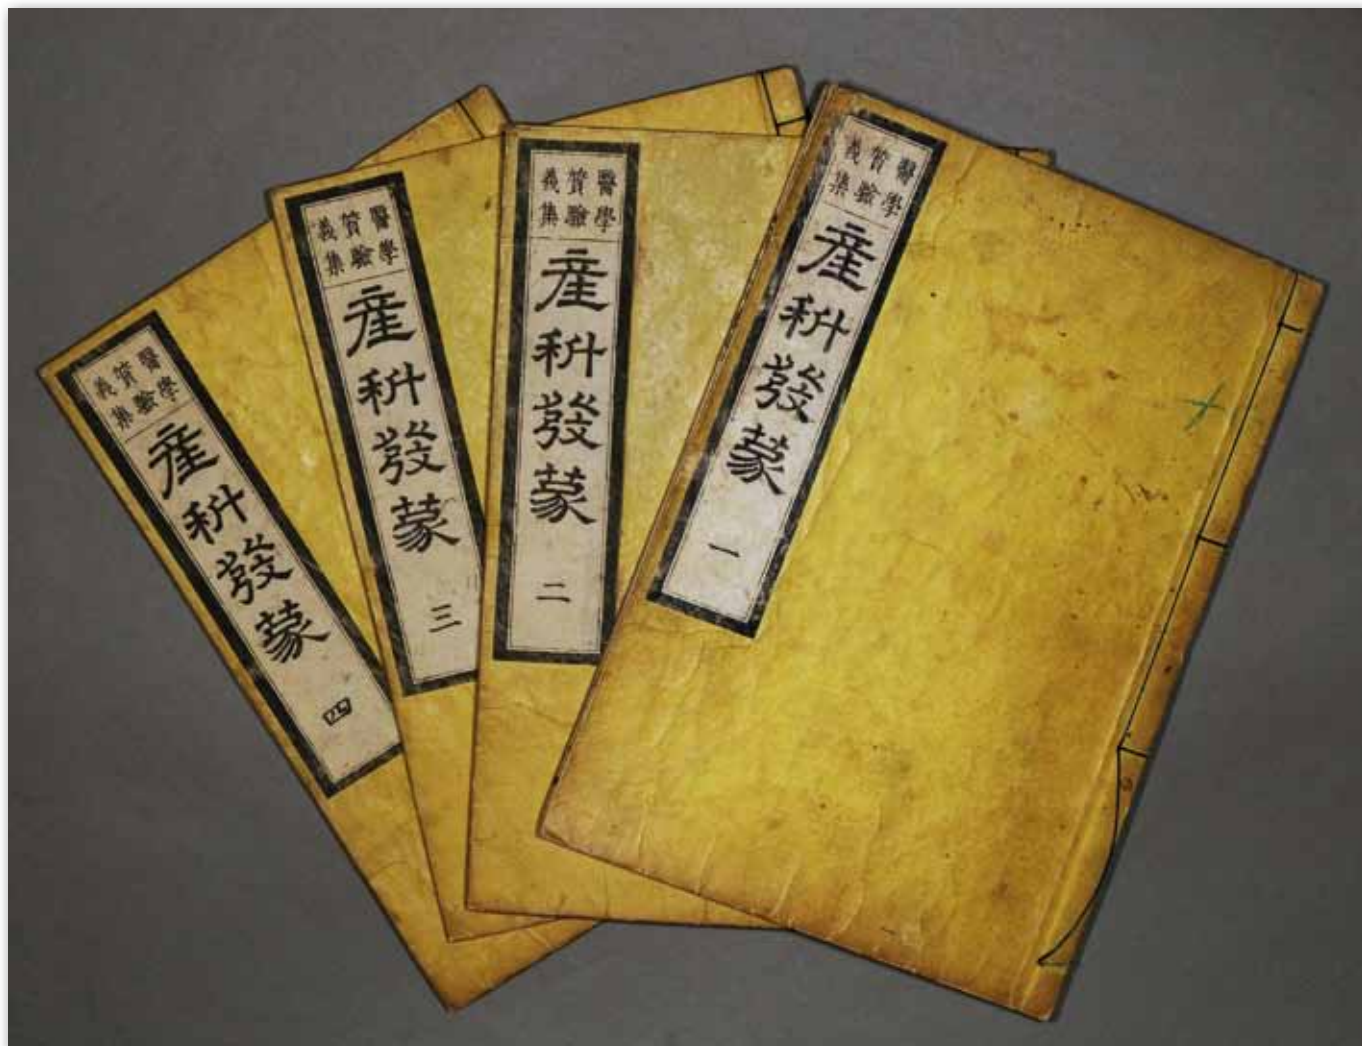 醫學
質驗
義集
産科發蒙 一
醫學
質驗
義集
産科發蒙 二
醫學
質驗
義集
産科發蒙 三
醫學
質驗
義集
産科發蒙 四